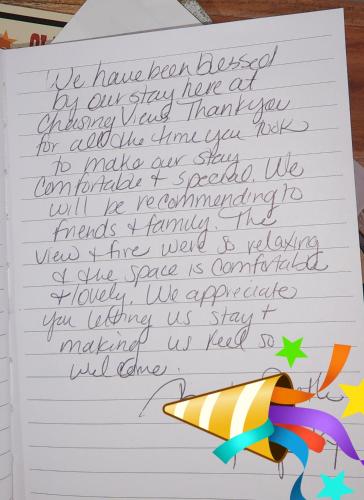 We have been blessed
by our stay here at
Chasing Views. Thank you
for all the time you took
to make our stay
comfortable + special. We
will be recommending to
friends & family. The
view + fire were so relaxing
& the space is comfortable
+ lovely. We appreciate
you letting us stay +
making us feel so
welcome.